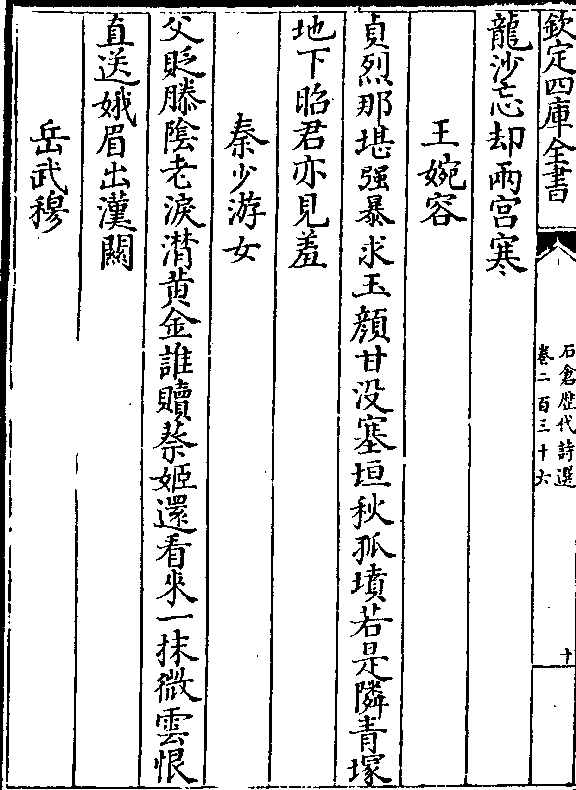 欽定四庫全書
石倉歷代詩選
卷二百三十六
十
龍沙忘却兩宫寒
王婉容
貞烈那堪强暴求玉顔甘没塞垣秋孤墳若是隣青塚
地下昭君亦見羞
秦少游女
父貶滕陰老淚潸黄金誰贖蔡姬還看來一抹微雲恨
直送娥眉出漢關
岳武穆